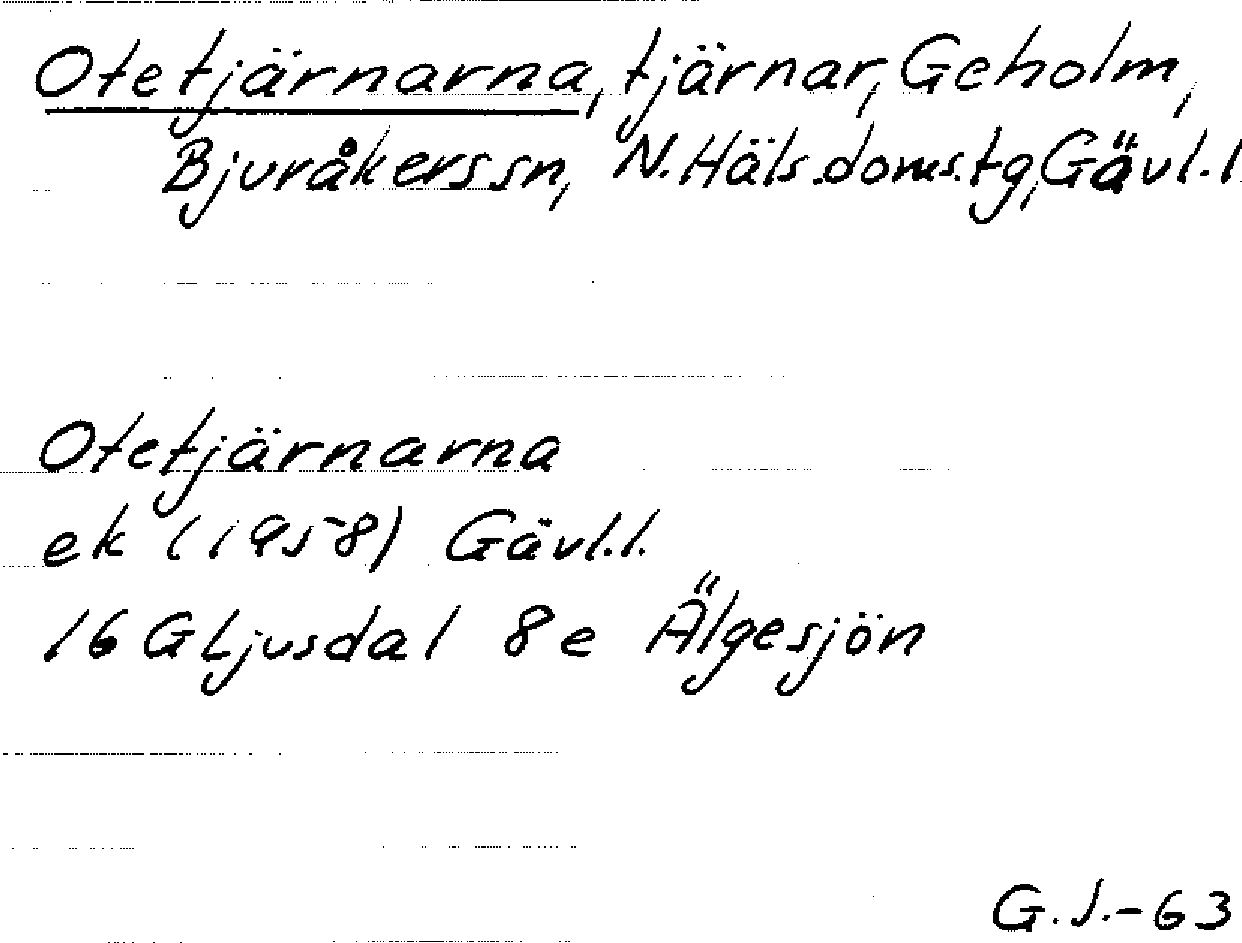 Otetjärnarna, tjärnar, Geholm,
Bjuråkers sn, N. Häls. doms. tg, Gävl. l
Otetjärnarna
ek (1958) Gävl. l.
16 G Ljusdal 8e Älgesjön
G.J.-63